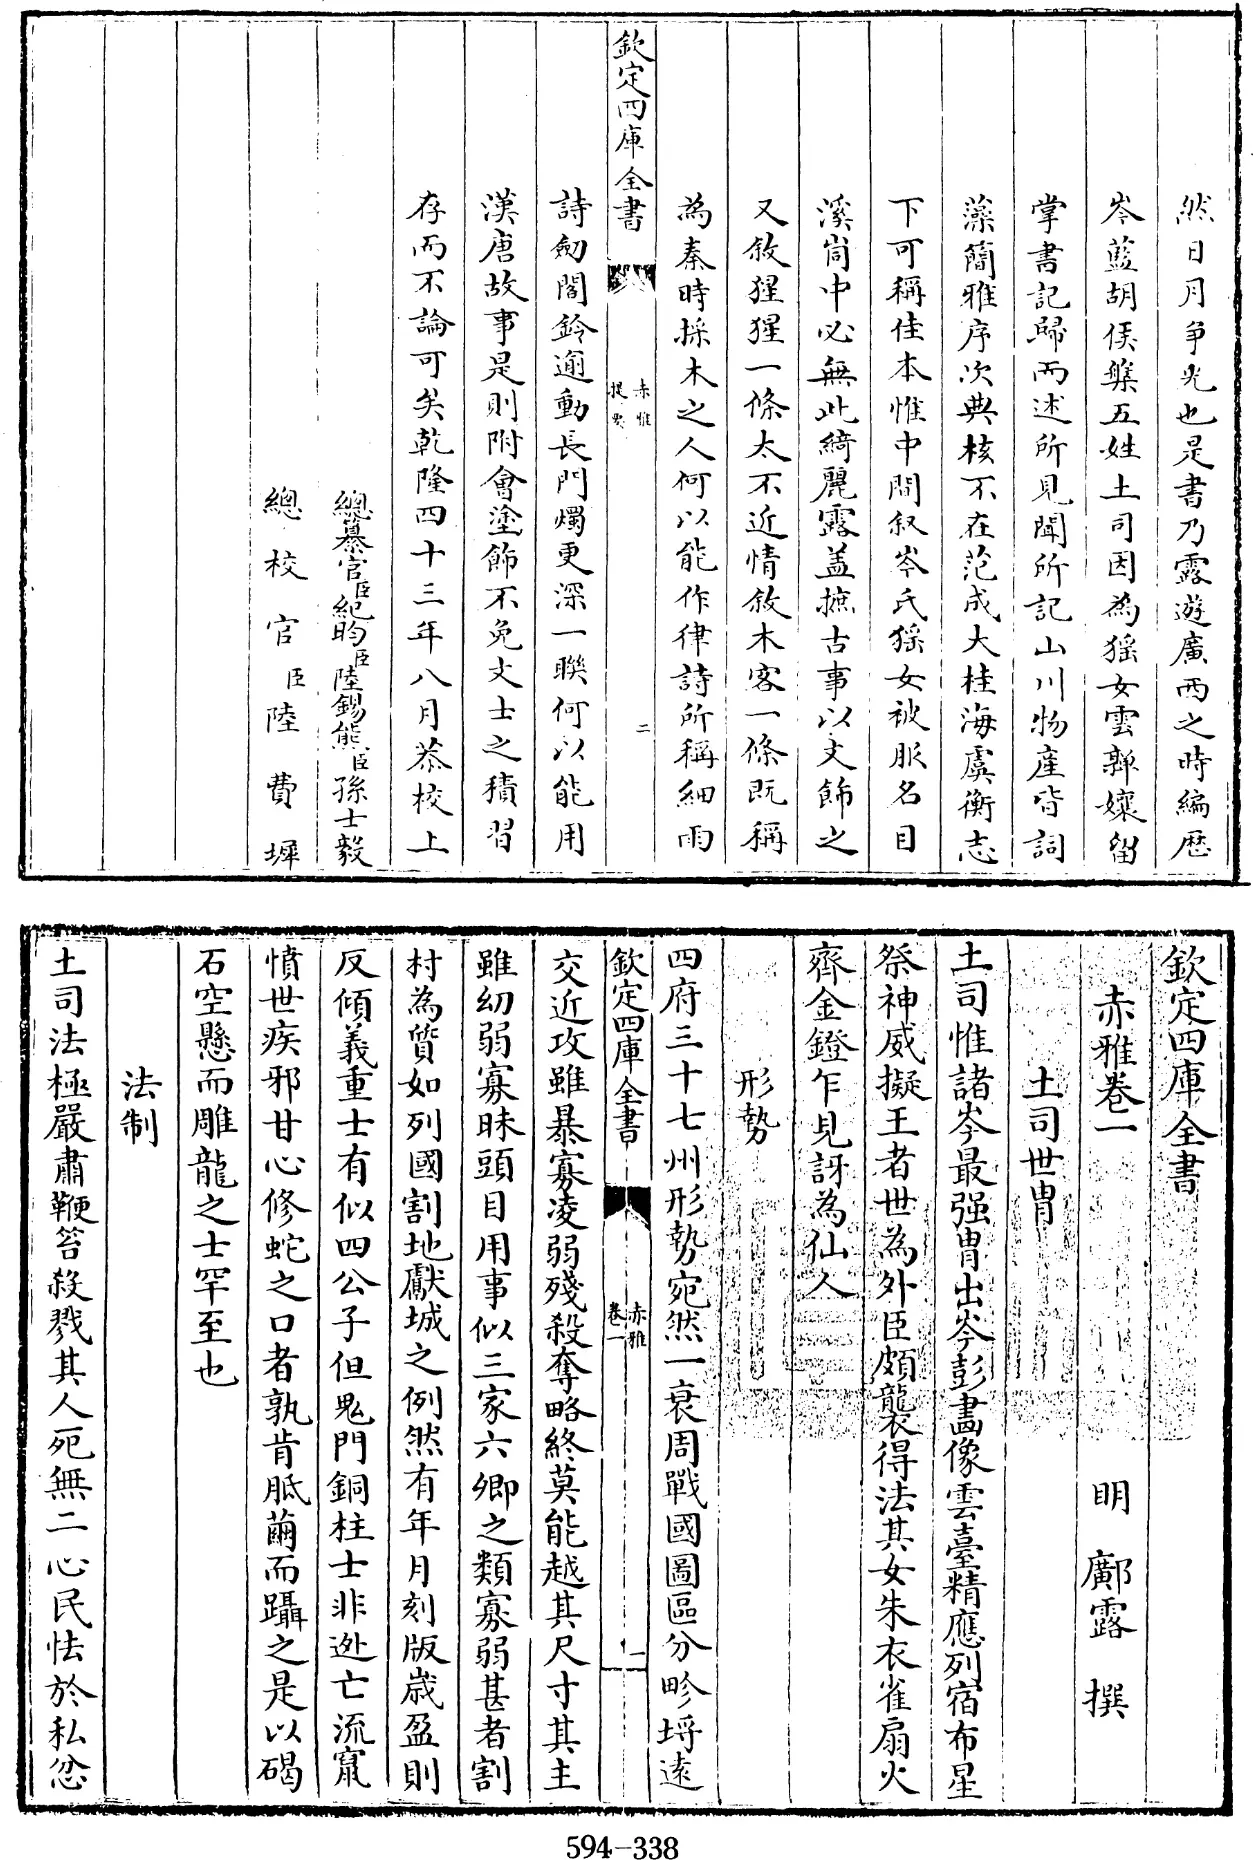 然日月争光也是書乃露遊廣西之時編歴
岑藍胡侯槃五姓土司因為猺女雲亸孃留
掌書記歸而述所見聞所記山川物產皆詞
藻簡雅序次典核不在范成大桂海虞衡志
下可稱佳本惟中間叙岑氏猺女被服名目
溪峝中必無此綺麗露蓋摭古事以文飾之
又敘猩猩一條太不近情敘木客一條既稱
為秦時採木之人何以能作律詩所稱細雨
欽定四庫全書
赤雅
提要
二
詩劒閣鈴逾動長門燭更深一聯何以能用
漢唐故事是則附會塗飾不免文士之積習
存而不論可矣乾隆四十三年八月恭校上
總纂官臣紀昀臣陸錫熊臣孫士毅
總校官臣陸費墀
欽定四庫全書
赤雅卷一
明 鄺露 撰
土司世胄
土司惟諸岑最强胄出岑彭畫像雲臺精應列宿布星
祭神威擬王者世為外臣頗襲得法其女朱衣雀扇火
齊金鐙乍見訝為仙人
形勢
四府三十七州形勢宛然一衰周戰國圖區分畛埓逺
欽定四庫全書
赤雅
卷一
二
交近攻雖暴寡凌弱殘殺奪略終莫能越其尺寸其主
雖幼弱寡昧頭目用事似三家六卿之類寡弱甚者割
村為質如列國割地獻城之例然有年月刻版歲盈則
反傾義重士有似四公子但鬼門銅柱士非逊亡流竄
憤世疾邪甘心修蛇之口者孰肯胝繭而躡之是以碣
石空懸而雕龍之士罕至也
法制
土司法極嚴肅鞭笞殺戮其人死無二心民怯於私忿
594-338